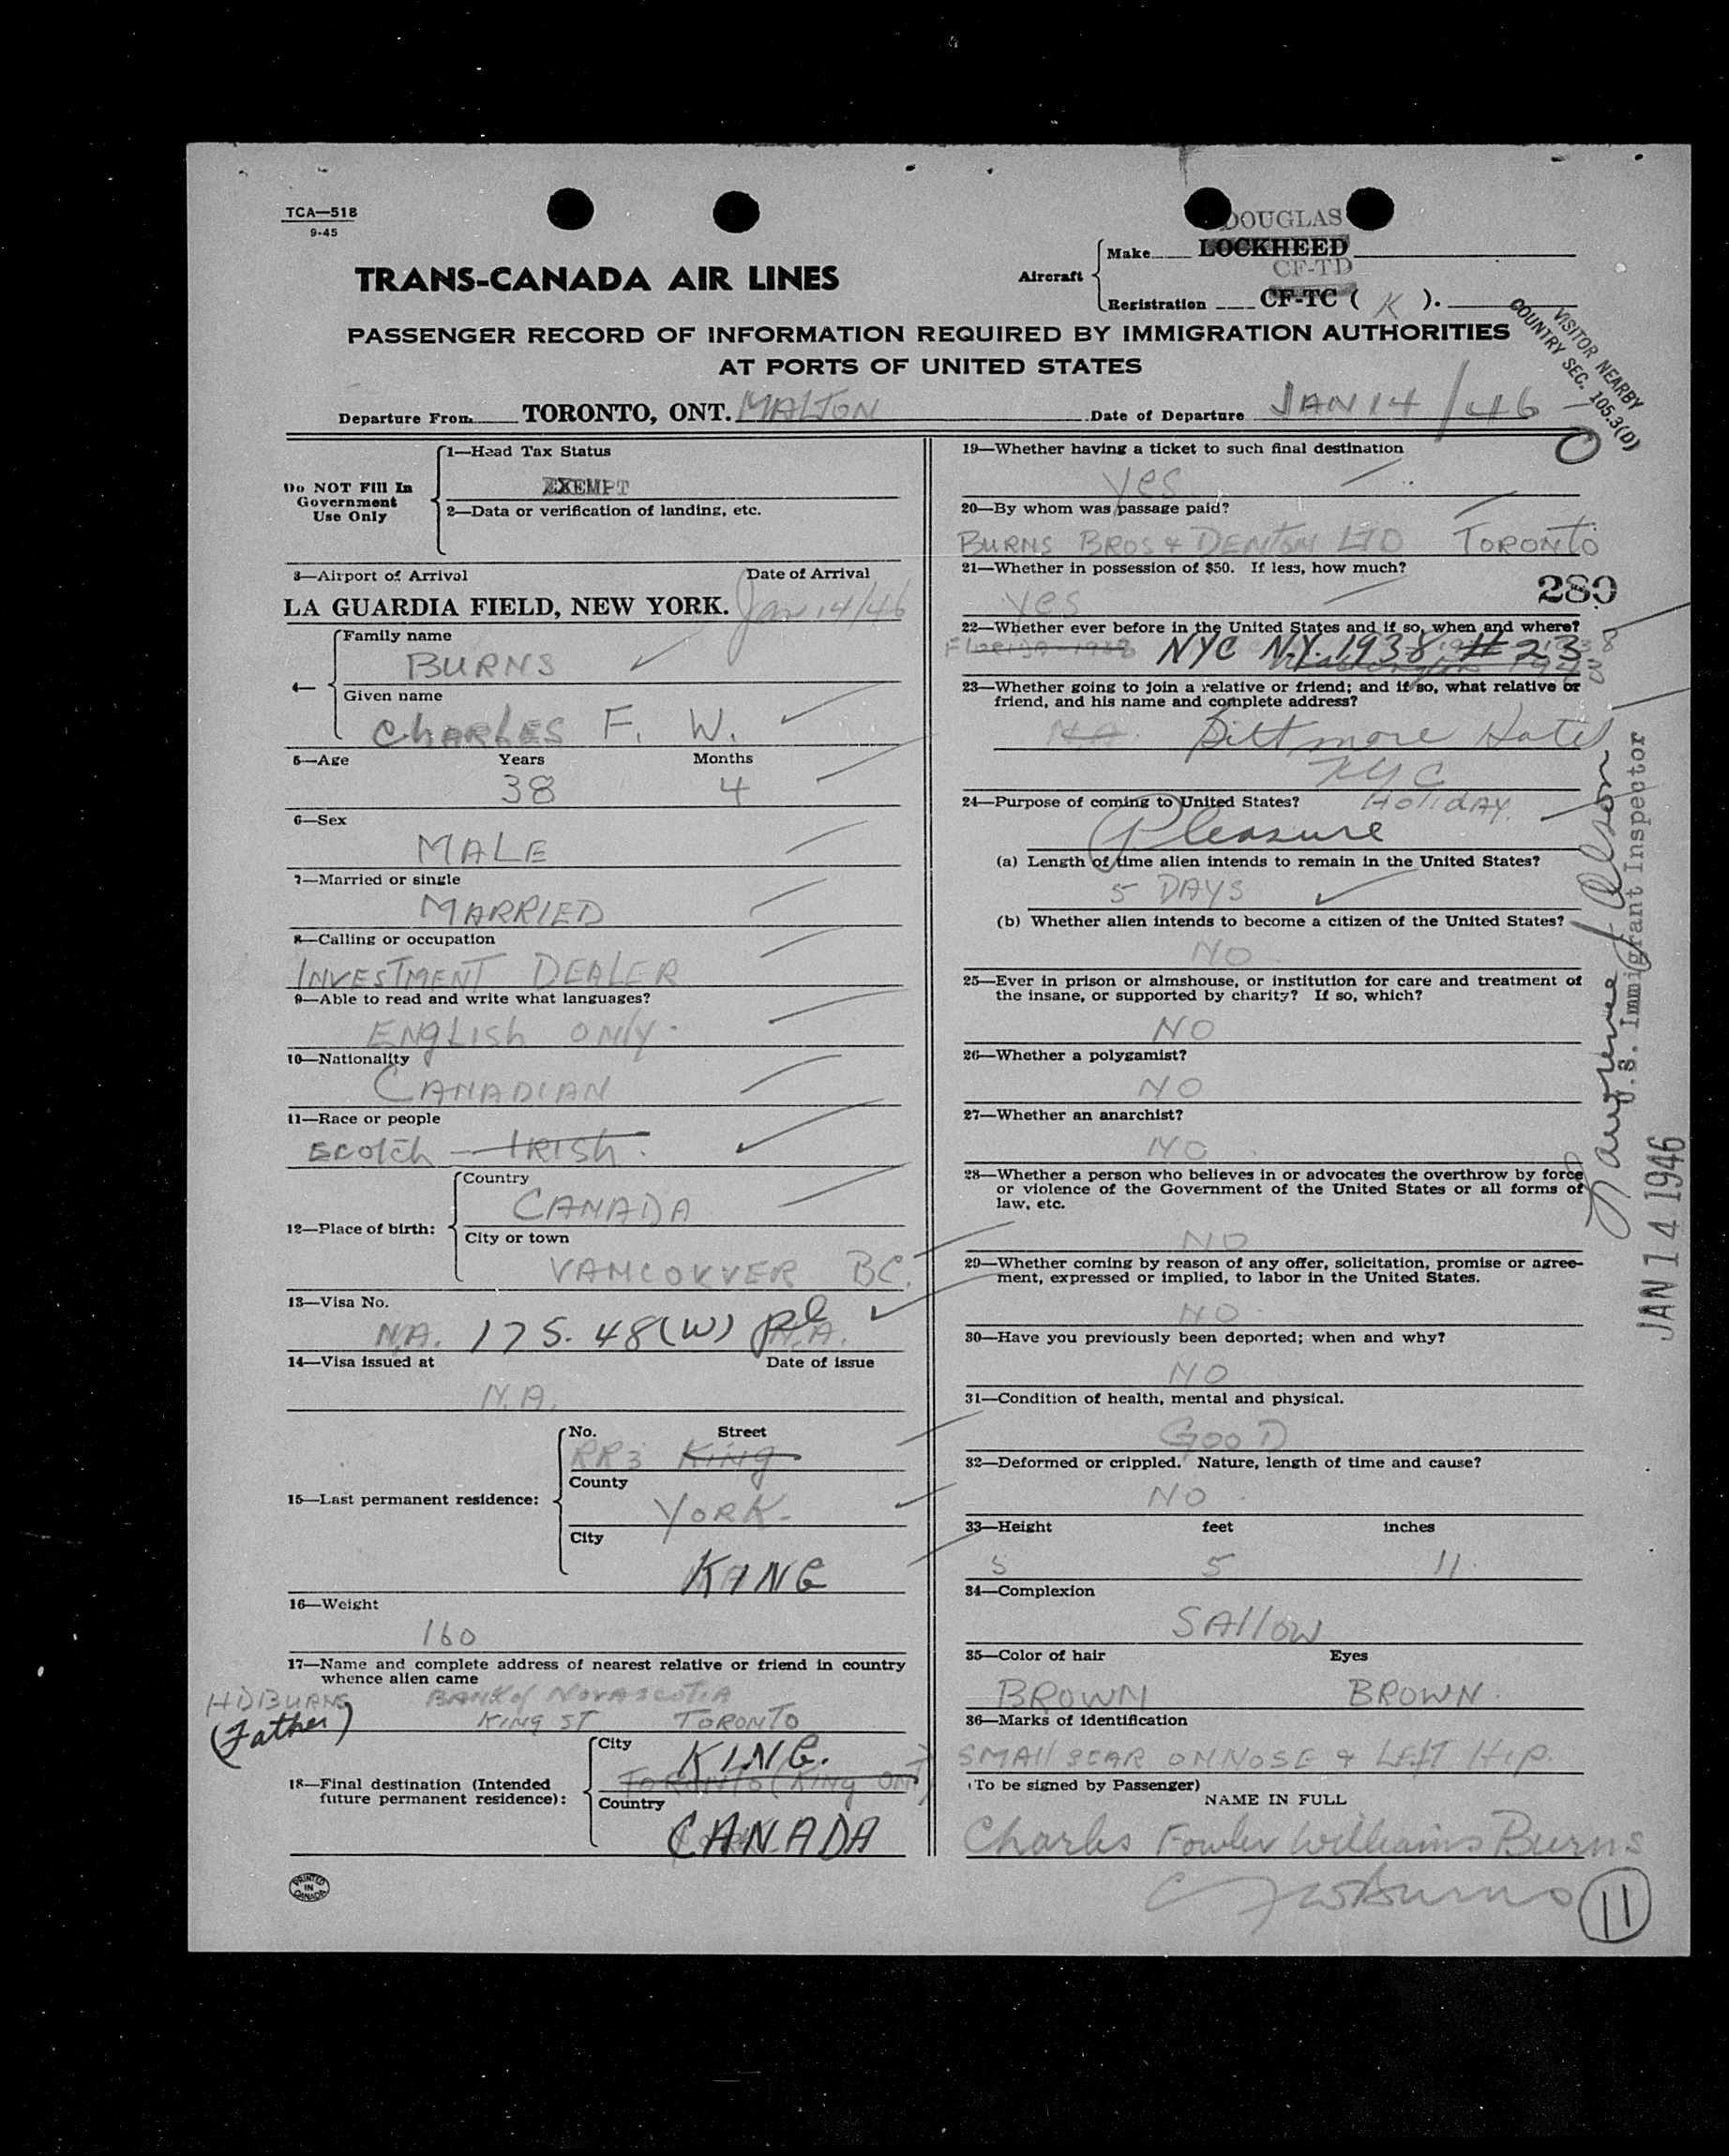 TCA—518
9-45
DOUGLAS
Aircraft
Make LOCKHEED
CF-TD
Registration CF-TC ( K ).
TRANS-CANADA AIR LINES
PASSENGER RECORD OF INFORMATION REQUIRED BY IMMIGRATION AUTHORITIES
AT PORTS OF UNITED STATES
VISITOR NEARBY
COUNTRY SEC. 105.3(D)
Departure From TORONTO, ONT. MALTON
Date of Departure JAN 14/46
Do NOT Fill In
Government
Use Only
1—Head Tax Status
EXEMPT
2—Data or verification of landing, etc.
3—Airport of Arrival Date of Arrival
LA GUARDIA FIELD, NEW YORK. Jan 14/46
4—
Family name
BURNS
Given name
CHARLES F. W.
5—Age Years Months
38 4
6—Sex
MALE
7—Married or single
MARRIED
8—Calling or occupation
INVESTMENT DEALER
9—Able to read and write what languages?
ENGLISH ONLY.
10—Nationality
CANADIAN
11—Race or people
Scotch IRISH.
12—Place of birth:
Country
CANADA
City or town
VANCOUVER BC.
13—Visa No.
N.A. 175.48(W) N.A.
14—Visa issued at Date of issue
N.A.
15—Last permanent residence:
No. Street
RR3 KING
County
YORK.
City
KING
16—Weight
160
17—Name and complete address of nearest relative or friend in country
whence alien came
HD BURNS BANK of NOVA SCOTIA
(Father) KING ST TORONTO
18—Final destination (Intended
future permanent residence):
City KING.
TORONTO (KING ONT)
Country
CANADA
PRINTED
IN
CANADA
19—Whether having a ticket to such final destination
yes
20—By whom was passage paid?
BURNS BROS & DENTON LTD TORONTO
21—Whether in possession of $50. If less, how much?
yes
280
22—Whether ever before in the United States and if so, when and where?
Florida 1938 NYC N.Y. 1938 # 23
23—Whether going to join a relative or friend; and if so, what relative or
friend, and his name and complete address?
N.A. Biltmore Hotel
NYC
24—Purpose of coming to United States? HOLIDAY.
Pleasure
(a) Length of time alien intends to remain in the United States?
5 DAYS
(b) Whether alien intends to become a citizen of the United States?
NO
25—Ever in prison or almshouse, or institution for care and treatment of
the insane, or supported by charity? If so, which?
NO
26—Whether a polygamist?
NO
27—Whether an anarchist?
NO
28—Whether a person who believes in or advocates the overthrow by force
or violence of the Government of the United States or all forms of
law, etc.
NO
29—Whether coming by reason of any offer, solicitation, promise or agree-
ment, expressed or implied, to labor in the United States.
NO
30—Have you previously been deported; when and why?
NO
31—Condition of health, mental and physical.
GOOD
32—Deformed or crippled. Nature, length of time and cause?
NO
33—Height feet inches
5 5 11.
34—Complexion
SALLOW
35—Color of hair Eyes
BROWN BROWN.
36—Marks of identification
SMALL SCAR ON NOSE & LEFT HIP.
(To be signed by Passenger)
NAME IN FULL
Charles Fowler Williams Burns
CFW Burns
11
U.S. Immigrant Inspector
JAN 14 1946